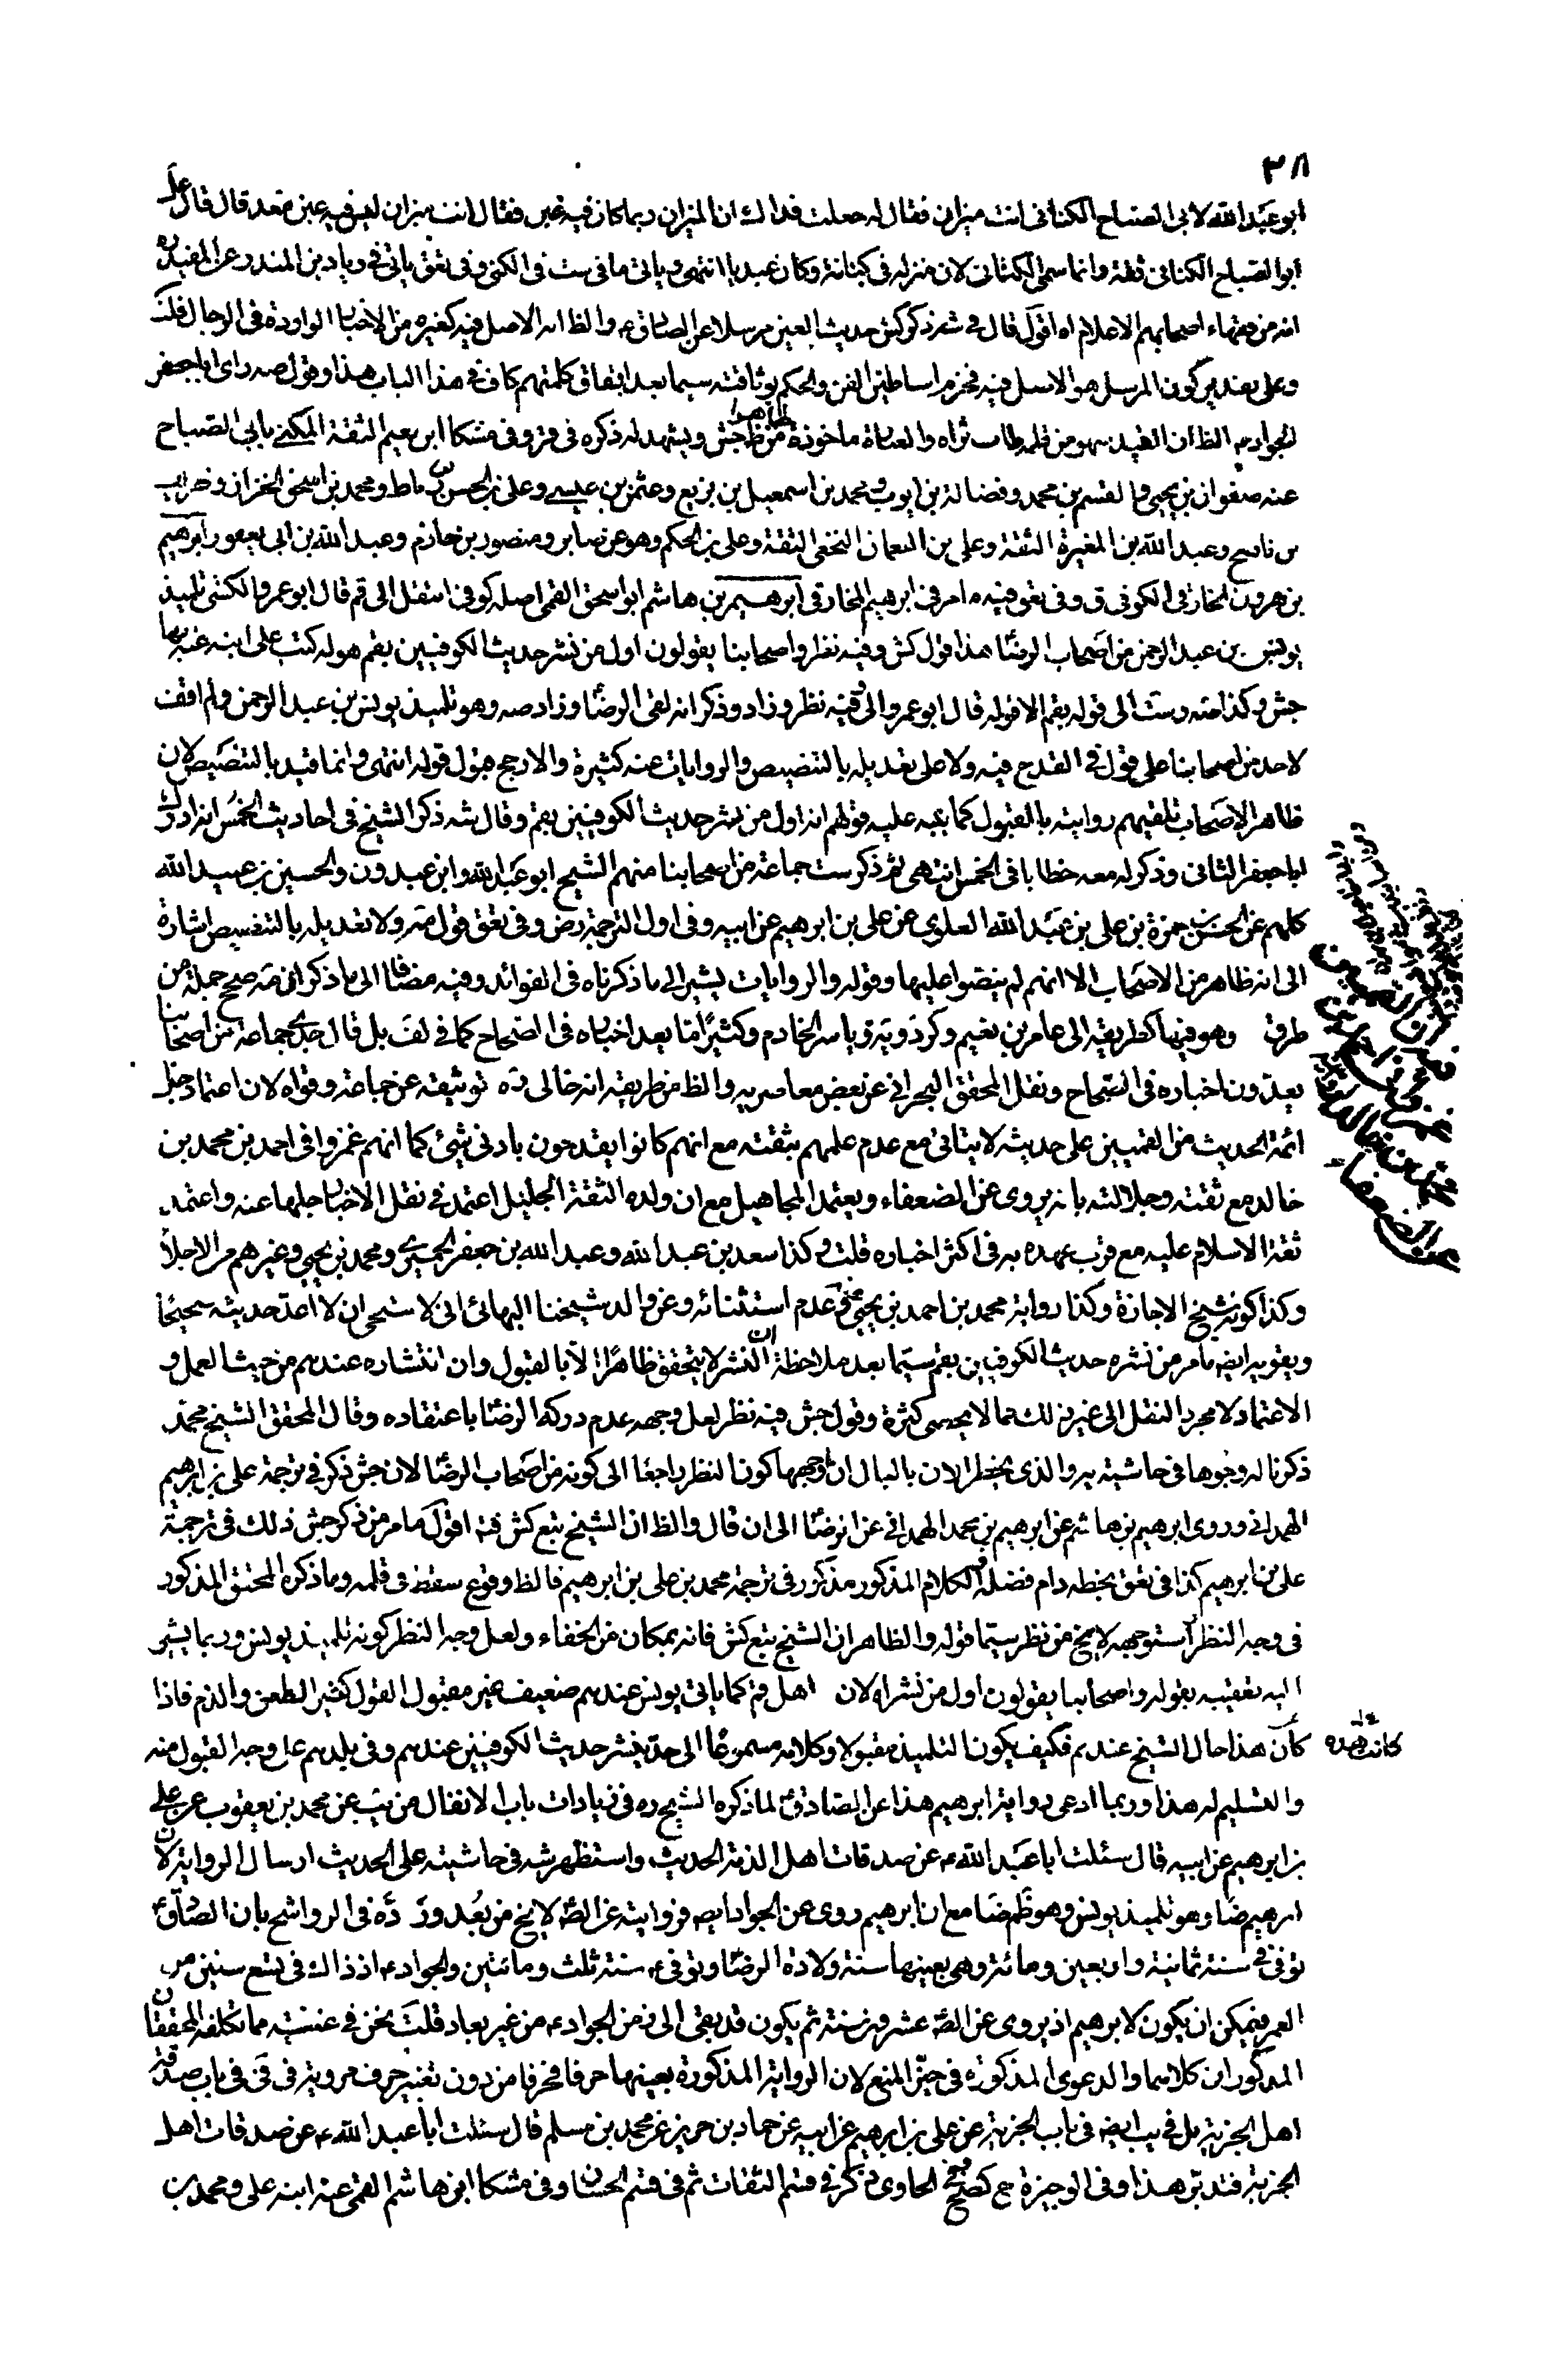 ٣٨
ابو عبد الله لابى الصباح الكنانى انت ميزان فقال له جعلت فداك ان الميزان ربما كان فيه عين فقال انت ميزان ليس فيه عين محمد قال قال على
ابو الصباح الكنانى ثقة وانما سمى الكنانى لان منزله فى كنانة وكان عبديا انتهى وياتى ما فى ست فى الكنى وفى تعق ياتى فى زياد بن المنذر عن المفيد ره
انه من فقهاء اصحابهم الاعلام اه اقول قال فى شه ذكر كش حديث العين مرسلا عن الصادق ع والظ انه الاصل فيه كغيره من الاخبار الواردة فى الرجال قلت
وعلى تقدير كون المرسل هو الاصل فيه فجزم اساطين الفن والحكم بوثاقته سيما بعد اتفاق كلمتهم كاف فى هذا الباب هذا وقول صه راى ابا جعفر
الجواد ع الظ ان القيد سهو من قلمه طاب ثراه والعبارة ماخوذة من ظ جش ويشهد له ذكره فى قر وفى مشكا ابن نعيم الثقة المكنى بابى الصباح
عنه صفوان بن يحيى والقسم بن محمد وفضالة بن ايوب ومحمد بن اسمعيل بن بزيع وعثمن بن عيسى وعلى بن الحسن بن رباط ومحمد بن اسحق الخزاز وظريف
بن ناصح وعبد الله بن المغيرة الثقة وعلى بن النعمان النخعى الثقة وعلى بن الحكم وهو عن صابر ومنصور بن حازم وعبد الله بن ابى يعفور ابرهيم
بن هرون الخارفى الكوفى ق وفى تعق فيه ما مر فى ابرهيم المخارقى ابرهيم بن هاشم ابو اسحق القمى اصله كوفى انتقل الى قم قال ابو عمرو الكشى تلميذ
يونس بن عبد الرحمن من اصحاب الرضا هذا قول كش وفيه نظر واصحابنا يقولون اول من نشر حديث الكوفيين بقم هو له كتب على ابنه عنه بها
جش وكذا صه وست الى قوله بقم الا قوله قال ابو عمرو الى وفيه نظر وزاد وذكر انه لقى الرضا وزاد صه وهو تلميذ يونس بن عبد الرحمن ولم اقف
لاحد من اصحابنا على قول فى القدح فيه ولا على تعديله بالتنصيص والروايات عنه كثيرة والارجح قبول قوله انتهى وانما قيد بالتنصيص لان
ظاهر الاصحاب تلقيهم روايته بالقبول كما ينبه عليه قولهم انه اول من نشر حديث الكوفيين بقم وقال شه ذكر الشيخ فى احاديث الخمس انه ادرك
ابا جعفر الثانى وذكر له معه خطابا فى الخمس انتهى ثم ذكر ست جماعة من اصحابنا منهم الشيخ ابو عبد الله وابن عبدون والحسين بن عبيد الله
كلهم عن الحسن بن حمزة بن على بن عبد الله العلوى عن على بن ابرهيم عن ابيه وفى اول الترجمة رض وفى تعق قول صه ولا تعديله بالتنصيص اشارة
الى انه ظاهر من الاصحاب الا انهم لم ينصوا عليها وقوله والروايات يشير الى ما ذكرناه فى الفوائد وفيه مضافا الى ما ذكر انه صه صحح جملة من
طرق وهو فيها كطريقه الى عامر بن نعيم وكردويه وياسر الخادم وكثيرا ما يعد اخباره فى الصحاح كما فى لف بل قال جدى جماعة من اصحابنا
يعدون اخباره فى الصحاح ونقل المحقق البحرانى عن بعض معاصريه والظ من طريقته انه خالى ره توثيقه عن جماعة وقواه لان اعتماد جل
ائمة الحديث من القميين على حديثه لا يتاتى مع عدم علمهم بثقته مع انهم كانوا يقدحون بادنى شئ كما انهم غمزوا فى احمد بن محمد بن
خالد مع ثقته وجلالته بانه يروى عن الضعفاء ويعتمد المجاهيل مع ان ولده الثقة الجليل اعتمد فى نقل الاخبار جلها عنه واعتمد
ثقة الاسلام عليه مع قرب عهده به فى اكثر اخباره قلت وكذا سعد بن عبد الله وعبد الله بن جعفر الحميرى ومحمد بن يحيى وغيرهم من الاجلاء
وكذا كونه شيخ الاجازة وكذا رواية محمد بن احمد بن يحيى عنه وعدم استثنائه وعن والد شيخنا البهائى انى لاستحى ان لا اعد حديثه صحيحا
ويقويه ايضا ما مر من نشره حديث الكوفيين بقم سيما بعد ملاحظة ان النشر لا يتحقق ظاهرا الا بالقبول وان انتشاره عندهم من حيث العمل و
الاعتماد لا مجرد النقل الى غير ذلك مما لا يحصى كثرة وقول جش فيه نظر لعل وجهه عدم دركه الرضا باعتقاده وقال المحقق الشيخ محمد
ذكرنا له وجوها فى حاشية يه والذى يخطر الان بالبال ان اوجهها كون النظر راجعا الى كونه من اصحاب الرضا لان جش ذكر فى ترجمة على بن ابرهيم
الهمدانى وروى ابرهيم بن هاشم عن ابرهيم بن محمد الهمدانى عن الرضا الى ان قال والظ ان الشيخ يتبع كش فيه اقول ما مر من ذكر جش ذلك فى ترجمة
على بن ابرهيم كذا فى تعق بخطه دام فضله والكلام المذكور مذكور فى ترجمة محمد بن على بن ابرهيم فالظ وقوع سقط فى قلمه وما ذكره المحقق المذكور
فى وجه النظر استوجهه لا يخ من نظر سيما قوله والظاهر ان الشيخ يتبع كش فانه بمكان من الخفاء ولعل وجه النظر كونه تلميذ يونس وربما يشير
اليه تعقيبه بقوله واصحابنا يقولون اول من نشر اه لان اهل قم كما ياتى يونس عندهم ضعيف غير مقبول القول كثير الطعن والذم فاذا
كان هذا حال الشيخ عندهم فكيف يكون التلميذ مقبولا وكلامه مسموعا الى حد ينشر حديث الكوفيين عندهم وفى بلدهم على وجه القبول منه
والتسليم له هذا وربما ادعى رواية ابرهيم هذا عن الصادق ع لما ذكره الشيخ ره فى زيادات باب الانفال من يب عن محمد بن يعقوب عن على
بن ابرهيم عن ابيه قال سئلت ابا عبد الله ع عن صدقات اهل الذمة الحديث واستظهر شه فى حاشيته على الحديث ارسال الرواية لان
ابرهيم ضا وهو تلميذ يونس وهو ظم ضا مع ان ابرهيم روى عن الجواد ايضه فروايته عن الصا لا يخ من بعد ورده فى الرواشح بان الصادق ع
توفى فى سنة ثمانية واربعين ومائة وهى بعينها سنة ولادة الرضا وتوفى ع سنة ثلث ومائتين والجواد ع اذ ذاك فى تسع سنين من
العمر فيمكن ان يكون لابرهيم اذ يروى عن الصا عشرون سنة ثم يكون قد بقى الى زمن الجواد ع من غير بعاد قلت نحن فى غنية مما تكلفه المحققان
المذكوران كلاهما والدعوى المذكورة فى حيز المنع لان الرواية المذكورة بعينها حرفا فحرفا من دون تغيير حرف مروية فى فى فى باب صدقة
اهل الجزية بل فى يب ايضه فى باب الجزية عن على بن ابرهيم عن ابيه عن حماد بن حريز عن محمد بن مسلم قال سئلت ابا عبد الله ع عن صدقات اهل
الجزية فتدبر هذا وفى الوجيزة ح كصح وفى الحاوى ذكره فى قسم الثقات ثم فى قسم الحسان وفى مشكا ابن هاشم القمى عنه ابنه على ومحمد بن
كانت هذه